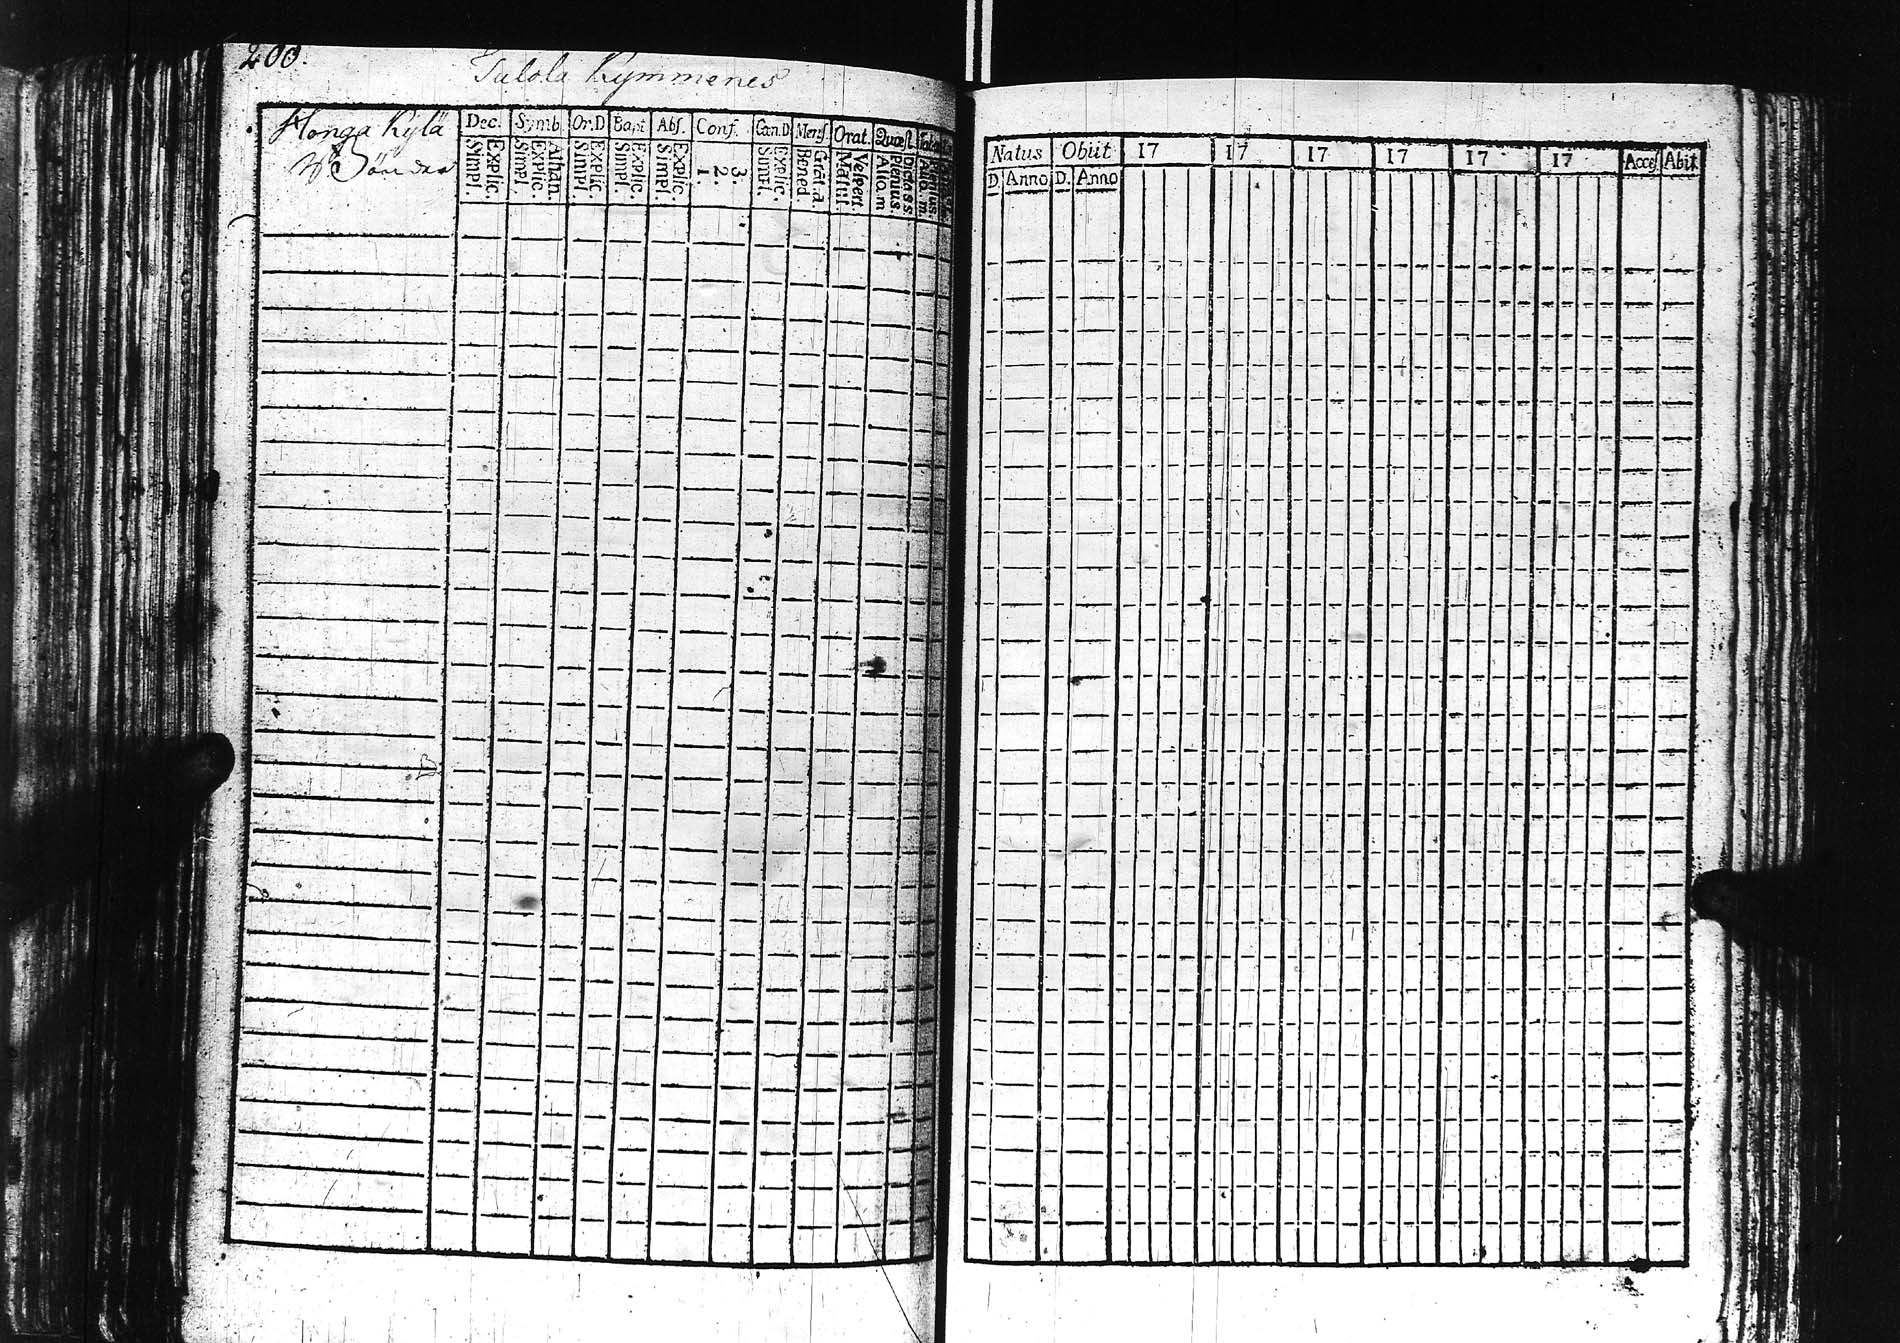 200.
Talola Kymmenes
Honga Kylä
Dec. Symb. Or.D Bapt Abs. Conf. Can.D Mens Orat. Quæst
Explic. Simpl.
Athan. Explic. Simpl.
Explic. Simpl.
Explic. Simpl.
Explic. Simpl.
3. 2. 1.
Explic. Simpl.
Grat. a Bened.
Vespert. Matut.
Dicta SS Plenius. Alio. m
Plenius Alio. m
Natus Obiit 17 17 17 17 17 17 Access. Abit
D. Anno D. Anno